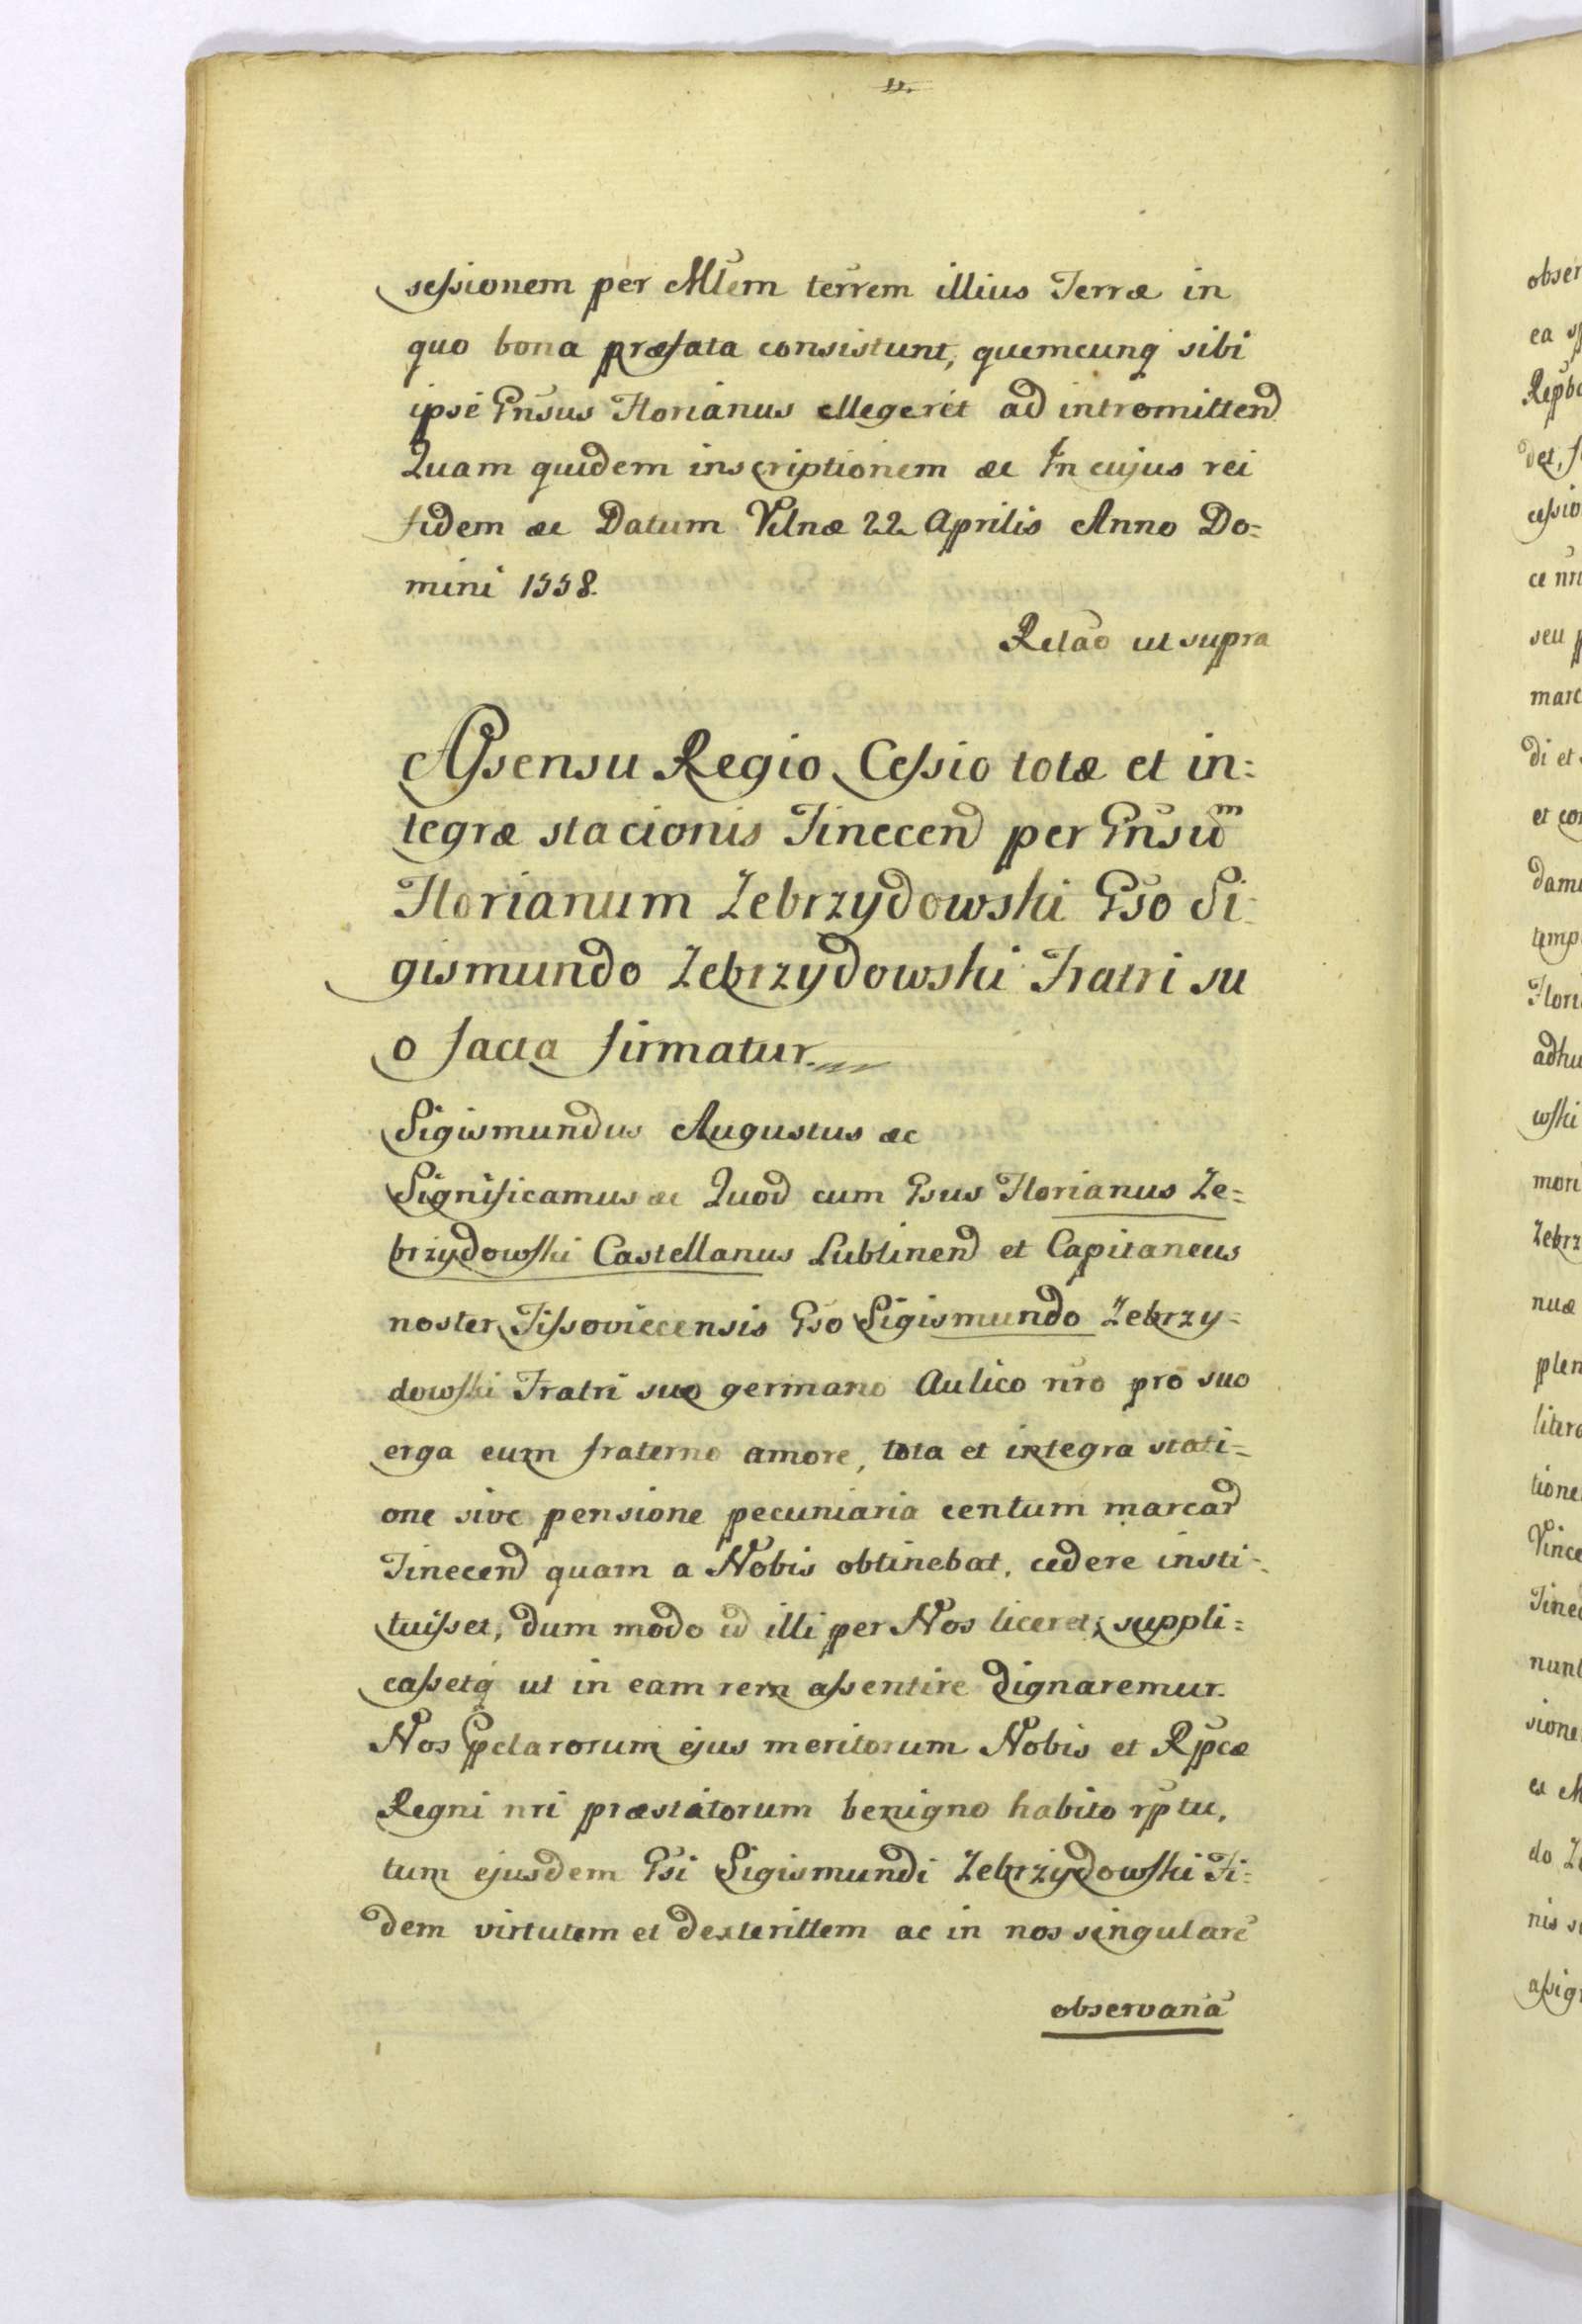 sessionem per Mlem terrem illius Terræ in
quo bona præfata consistunt, quemcunq sibi
ipse Gnsus Florianus ellegeret ad intromittend
Quam quidem inscriptionem æc In cujus rei
fidem æc Datum Vilnæ 22 Aprilis Anno Do=
mini 1558.
Relao ut supra
Assensu Regio Cessio totæ et in=
tegræ stacionis Tinecen per Gnsum
Florianum Zebrzydowski Gso Si=
gismundo Zebrzydowski Fratri su
o facta firmatur.
Sigismundus Augustus æc
Significamus æc Quod cum Gsus Florianus Ze=
brzydowski Castellanus Lublinen et Capitaneus
noster Tissoviecensis Gso Sigismundo Zebrzy=
dowski Fratri suo germano Aulico nro pro suo
erga eum fraterno amore, tota et integra stati=
one sive pensione pecuniaria centum marcar
Tinecen quam a Nobis obtinebat, cedere insti=
tuisset, dum modo id illi per Nos liceret; suppli=
cassetq ut in eam rem assentire dignaremur.
Nos pclarorum ejus meritorum Nobis et Rpcæ
Regni nri præstitorum benigno habito rptu,
tum ejusdem Gsi Sigismundi Zebrzydowski Fi=
dem virtutem et dexterittem ac in nos singulare
observana
obser
ea
Repbc
det,
cessio
ce nri
seu p
marc
di et
et con
damu
temp
Flori
adhu
wski
mori
Zebrz
nuæ
plen
litera
tione
Vince
Tinec
nunt
sione
et
do Ze
nis su
assig